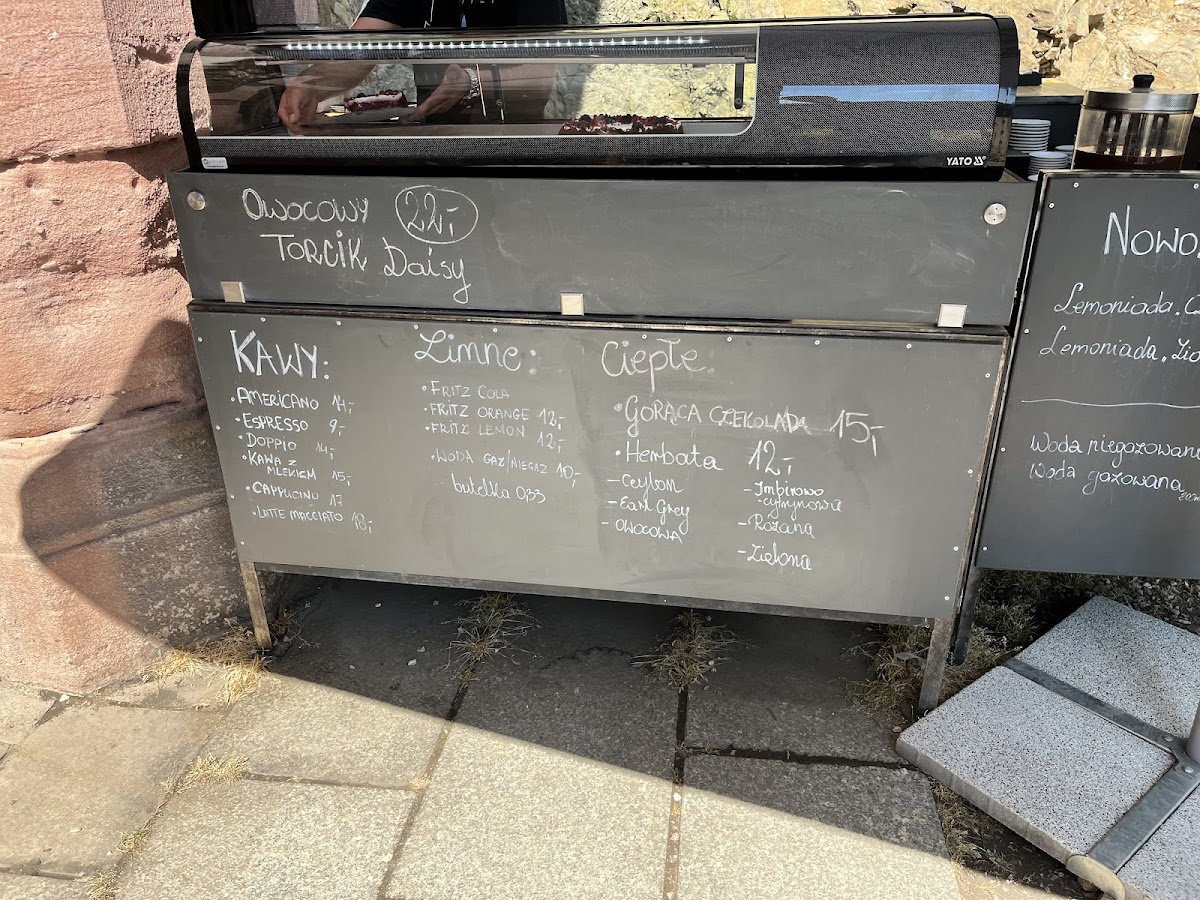 YATO
Owocowy 22,-
Torcik Daisy
KAWY:
• AMERICANO 14,-
• ESPRESSO 9,-
• DOPPIO 14,-
• KAWA Z
MLEKIEM 15,-
• CAPPUCINO 17
• LATTE MACCIATO 18,-
Zimne:
• FRITZ COLA
• FRITZ ORANGE 12,-
• FRITZ LEMON 12,-
• WODA GAZ/NIEGAZ 10,-
butelka 0,33
Ciepłe
• GORĄCA CZEKOLADA 15,-
• Herbata 12,-
- Ceylon
- Earl Grey
- OWOCOWA
- Imbirowo
- cytrynowa
- Różana
- Zielona
Nowo
Lemoniada
Lemoniada
Woda niegazowan
Woda gazowana